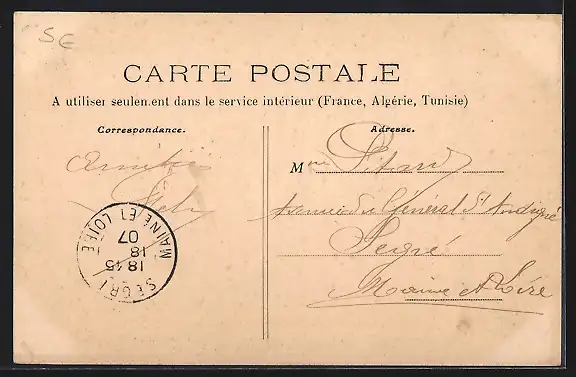 SE
CARTE POSTALE
A utiliser seulement dans le service intérieur (France, Algérie, Tunisie)
Correspondance.
Amitiés
Adresse.
Mme
Avenue du Général d'Andigné
Segré
Maine et Loire
SEGRÉ
MAINE-ET-LOIRE
18 45
18
07